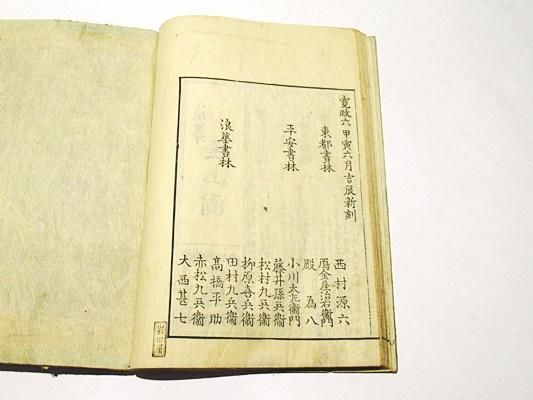 寛政六甲寅六月吉辰新刻
東都書林
西村源六
鴈金屋治右衛門
殿為八
平安書林
小川太左衛門
藤井孫兵衞
浪華書林
松村九兵衞
柳原喜兵衞
田村九兵衞
高橋平助
赤松九兵衞
大西甚七